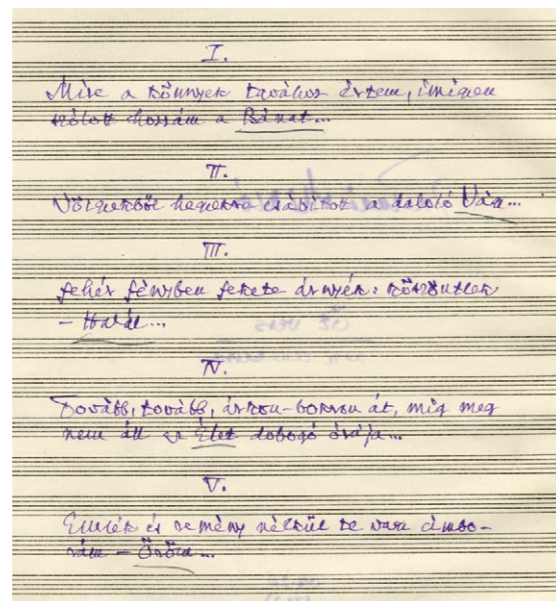 I.
Mire a könnyek tavához értem, imigyen
szólott hozzám a Bánat...
II.
Völgyekből hegyekre csábított a daloló Vágy...
III.
Fehér fényben fekete árnyék: köszöntlek
– Halál...
IV.
Tovább, tovább, árkon-bokron át, míg meg
nem áll az Élet dobogó órája...
V.
Emlék és remény nélkül te vagy cimbo-
rám –